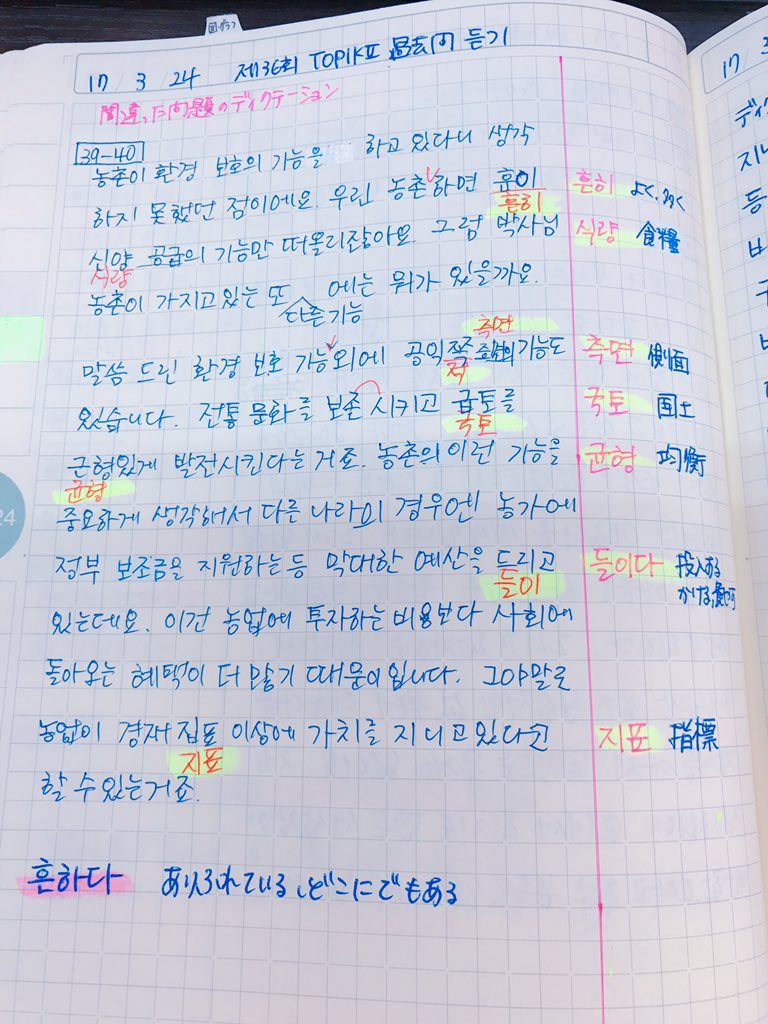 17 / 3 / 24 제36회 TOPIKⅡ 過去問 듣기
間違った問題のディクテーション
39-40
농촌이 환경 보호의 기능을 하고 있다니 생각
하지 못했던 점이에요. 우린 농촌하면 훈이 흔히 よく、
흔히
신양 공급의 기능만 떠올리잖아요. 그럼 박사님 식량 食糧
식량
농촌이 가지고 있는 또 에는 뭐가 있을까요.
다른 기능
측면
말씀 드린 환경 보호 기능 외에 공익 기능도 측면 側面
적
있습니다. 전통 문화를 보존 시키고 급토를 국토 国土
국토
근형있게 발전시킨다는 거죠. 농촌의 이런 기능을 균형 均衡
균형
중요하게 생각해서 다른 나라의 경우엔 농가에
정부 보조금을 지원하는 등 막대한 예산을 드리고 들이다 投入ある
들이 かける、
있는데요. 이건 농업에 투자하는 비용보다 사회에
돌아오는 혜택이 더 많기 때문이입니다. 그야말로
농업이 경제 집표 이상에 가치를 지니고 있다고 지표 指標
지표
할 수 있는거죠.
흔하다 ありふれている、どこにでもある
24
ディ
지나
등